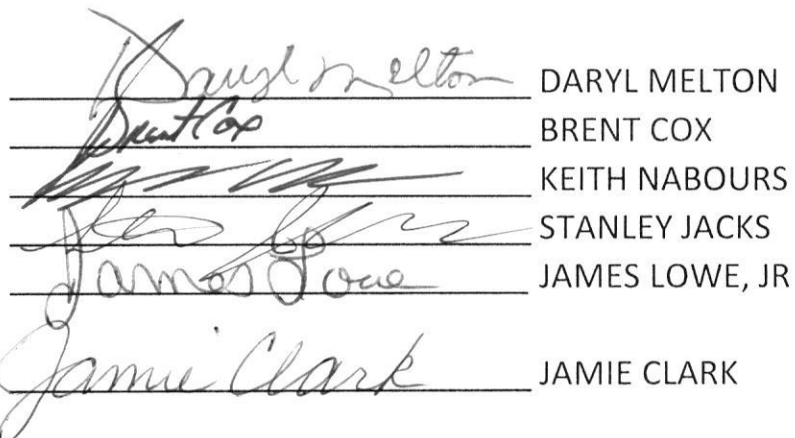 Daryl Melton DARYL MELTON
Brent Cox BRENT COX
KEITH NABOURS
STANLEY JACKS
James Lowe JAMES LOWE, JR
Jamie Clark JAMIE CLARK